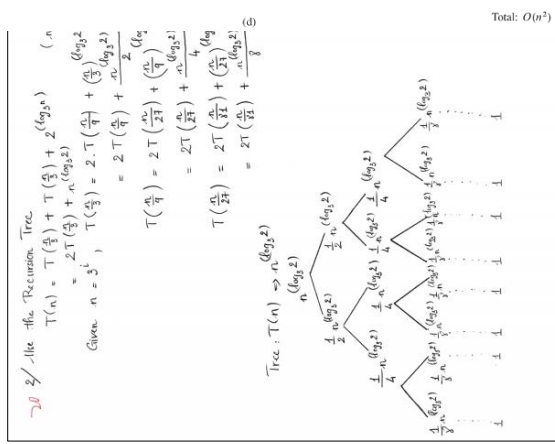 (d)
Total: O(n²)
20 2/ Use the Recursion Tree
T(n) = T(n/3) + T(n/3) + 2^(log₃n)
= 2T(n/3) + n^(log₃2)
Given n = 3^i, T(n/3) = 2.T(n/9) + (n/3)^(log₃2)
= 2T(n/9) + n^(log₃2)/2
T(n/9) = 2T(n/27) + (n/9)
= 2T(n/27) + n^(log₃2)/4
T(n/27) = 2T(n/81) + (n/27)
= 2T(n/81) + n^(log₃2)/8
Tree: T(n) → n^(log₃2)
n^(log₃2)
1/2 n^(log₃2) 1/2 n^(log₃2)
1/4 n^(log₃2) 1/4 n^(log₃2) 1/4 n^(log₃2) 1/4 n^(log₃2)
1/8 n^(log₃2) 1/8 n^(log₃2) 1/8 n^(log₃2) 1/8 n^(log₃2) 1/8 n^(log₃2) 1/8 n^(log₃2) 1/8 n^(log₃2) 1/8 n^(log₃2)
1 1 1 1 1 1 1 1